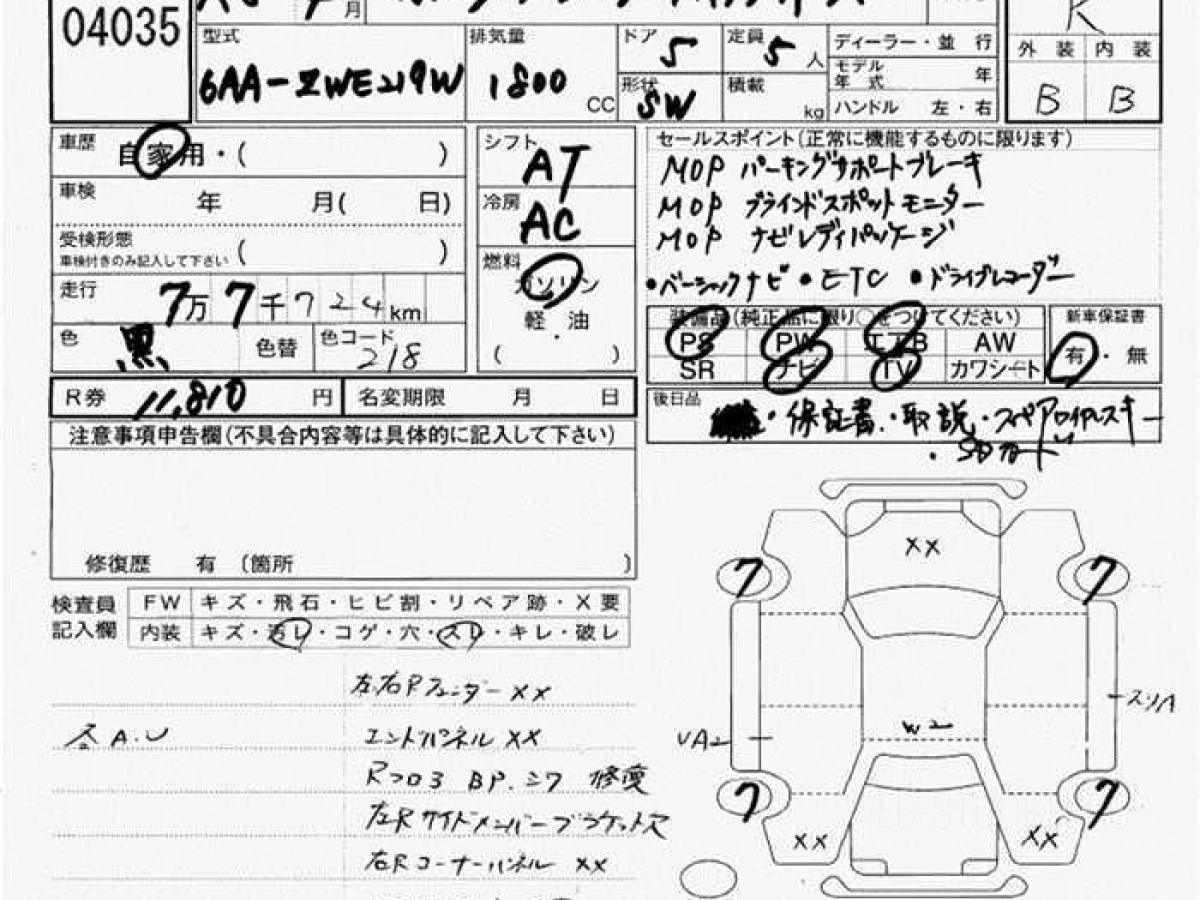 04035
月
型式
6AA-ZWE219W
排気量
1800 CC
ドア 5
定員 5 人
形状 SW
積載 kg
ディーラー・並 行
モデル年式 年
ハンドル 左・右
R
外 装 内 装
B B
車歴 自家用・( )
車検 年 月( 日)
受検形態
車検付きのみ記入して下さい ( )
走行 7万7千724km
色 黒 色替 色コード 218
シフト AT
冷房 AC
燃料 ガソリン
軽・油
( )
セールスポイント(正常に機能するものに限ります)
MOP パーキングサポートブレーキ
MOP ブラインドスポットモニター
MOP ナビレディパッケージ
・ベーシックナビ・ETC ・ドライブレコーダー
装備品(純正品に限り○をつけてください)
PS PW エアB AW
SR ナビ TV カワシート
新車保証書
有・無
R券 11,810 円 名変期限 月 日
後日品
・保証書・取説・スペアロイヤレスキー
・SDカード
注意事項申告欄(不具合内容等は具体的に記入して下さい)
修復歴 有 〔箇所 〕
検査員記入欄
FW キズ・飛石・ヒビ割・リペア跡・X要
内装 キズ・汚レ・コゲ・穴・スレ・キレ・破レ
左右Rフェンダー XX
各A.U
エンドパネル XX
Rフロ3 BP.シワ 修復
左Rサイドメンバーブラケット穴
右Rコーナーパネル XX
XX
7 7
W2
UA2
スリA
7 7
XX XX